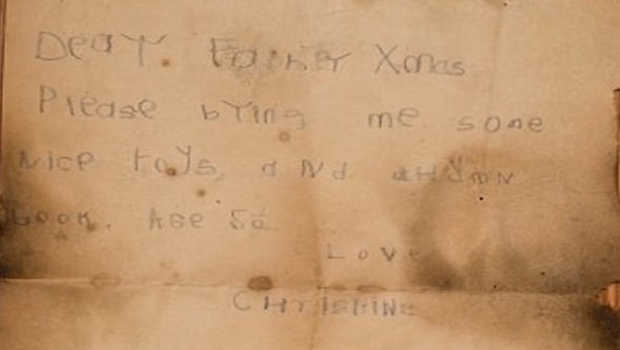 Dear. Father Xmas
Please bring me some
Nice toys, aNd
Book. Age 5a
Love
CHristiNe